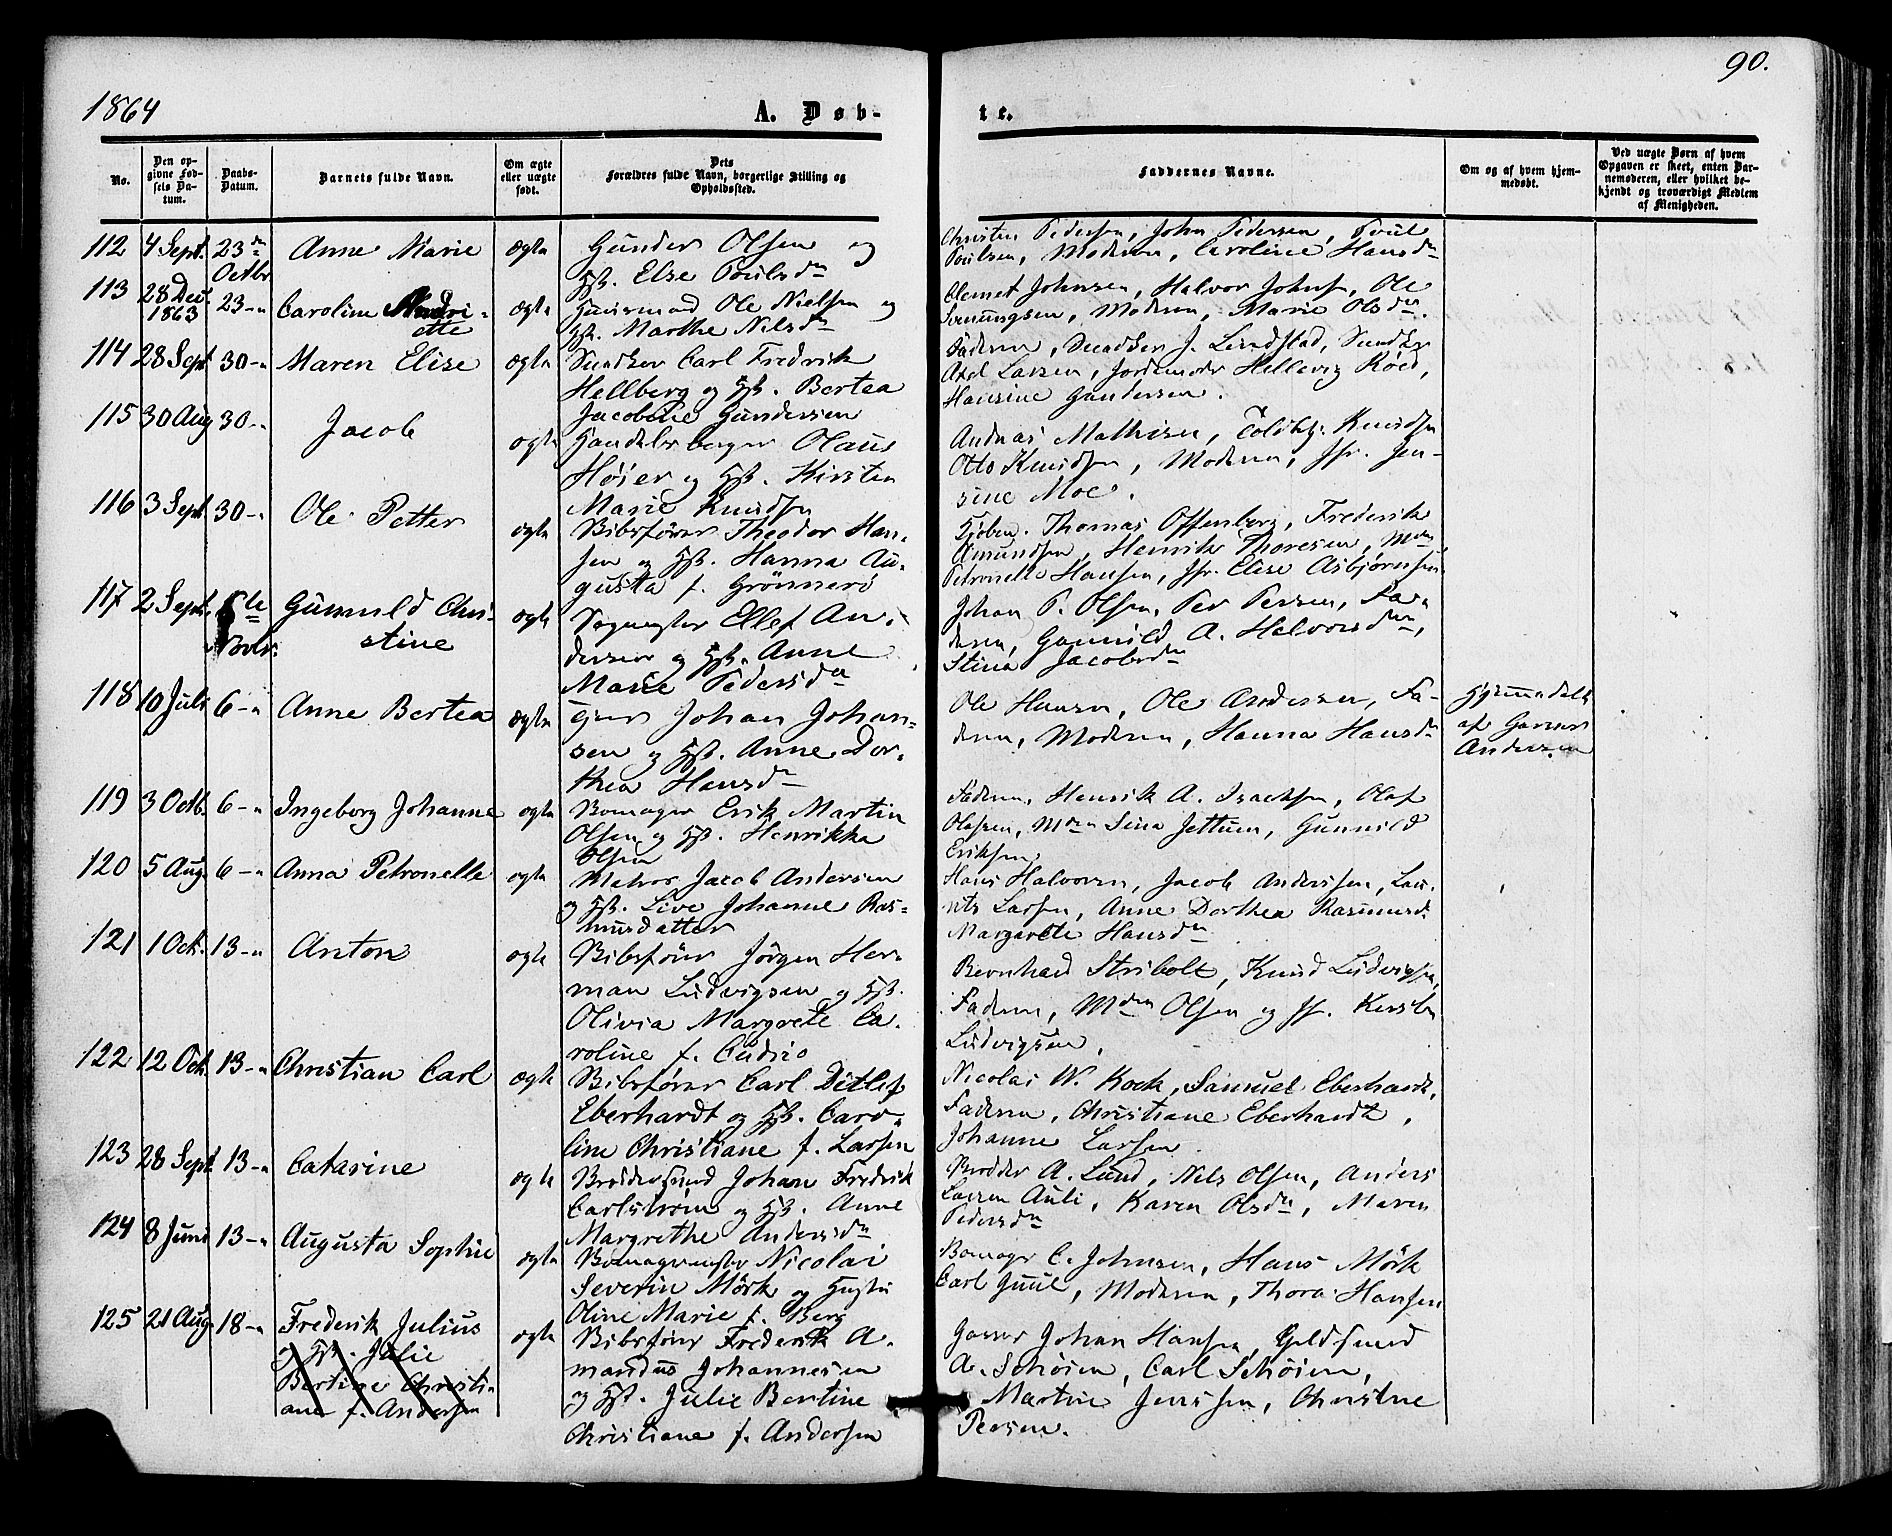 90.
1864
A. Døb-
te.
No.
Den op-
givne Fød-
sels Da-
tum.
Daabs-
Datum.
Barnets fulde Navn.
Om ægte
eller uægte
født.
Dets
Forældres fulde Navn, borgerlige Stilling og
Opholdssted.
Faddernes Navne.
Om og af hvem hjem-
medøbt.
Ved uægte Børn af hvem
Opgaven er skeet, enten Bar-
nemoderen, eller hvilket be-
kjendt og troværdigt Medlem
af Menigheden.
112 4 Sept. 23de Octbr
Anne Marie
ægte
Gunder Olsen og
Hst. Else Poulsdn
Christen Pedersen, John Pedersen, Poul
Poulsen, Moderen, Caroline Hansdn
113 28 Dec. 1863 23-"
Caroline Andri-
ette
ægte
Huusmand Ole Nielsen og
Hst. Marthe Nilsdn
Clemet Johnsen, Halvor Johns., Ole
Moderen, Marie Olsdn.
114 28 Sept 30-"
Maren Elise
ægte
Snedker Carl Fredrik
Hellberg og Hst. Bertea
Jacobine Gundersen
Faderen, Snedker J. Lindstad, Snedker
Axel Larsen, Jordemoder Hellevig Röed,
Hansine Gundersen.
115 30 Aug 30-"
Jacob
ægte
Handelsborger Olaus
Höier og Hst. Kirsten
Marie Knudsen
Andreas Mathisen, Toldbtj. Knudsen
Otto Knudsen, Moderen, Jfr. Jen-
sine Moe.
116 3 Sept. 30-"
Ole Petter
ægte
Bibsfører Theodor Han-
sen og Hst. Hanna Au-
gusta f. Grönnerö
Kjöbm. Thomas Offenberg, Frederik
Amundsen, Henrik Thoresen, Mdm
Petronelle Hansen, Jfr. Elise Asbjörnsen
117 2 Sept. 6te Novbr.
Gunnild Chri-
stine
ægte
Sagmester Ellef An-
dersen og Hst. Anne
Marie Pedersdn
Johan P. Olsen, Per Persen, Fa-
deren, Gunnild A. Halvorsdn,
Stina Jacobsdn
118 10 Juli 6-"
Anne Bertea
ægte
Eier Johan Johan-
sen og Hst. Anne Dor-
thea Hansdn
Ole Hansen, Ole Andersen, Fa-
deren, Moderen, Hanna Hansdn
Hjemmedøbt
af Gunner
Andersen
119 3 Octb. 6-"
Ingeborg Johanne
ægte
Bomager Erik Martin
Olsen og Hst. Henrikka
Olsen
Faderen, Henrik A. Isachsen, Olaf
Olafsen, Mdm Sina Jettum, Gunnild
Eriksen.
120 5 Aug. 6-"
Anna Petronelle
ægte
Matros Jacob Andersen
og Hst. Live Johanne Ras-
musdatter
Hans Halvorsen, Jacob Anderssen, Lau-
rits Larsen, Anne Dorthea Rasmusd.
Margarete Hansdn
121 1 Oct. 13-"
Anton
ægte
Bibsfører Jörgen Her-
man Ludvigsen og Hst.
Olivia Margrete Ca-
roline f. Cudrio
Bernhard Stribolt, Knud Ludvigsen,
Faderen, Mdm Olsen og Jfr. Kirstin
Ludvigsen.
122 12 Oct. 13-"
Christian Carl
ægte
Bibsfører Carl Ditlef
Eberhardt og Hst. Caro-
line Christiane f. Larsen
Nicolai W. Kock, Samuel Eberhardt,
Faderen, Christiane Eberhardt,
Johanne Larsen.
123 28 Sept. 13-"
Catarine
ægte
Brödersvend Johan Fredrik
Carlström og Hst. Anne
Margrethe Andersdn
Brödder A. Lund, Nils Olsen, Anders
Larsen Auli, Karen Olsdn, Maren
Pedersdn
124 8 Juni 13-"
Augusta Sophie
ægte
Bomagermester Nicolai
Severin Mörk og Hustru
Oline Marie f. Berg
Bomager C. Johnsen, Hans Mörk
Carl Juul, Moderen, Thora Hansen
125 21 Aug. 18-"
Frederik Julius
og Hst. Julie
Bertine Christi-
ane f. Andersen
ægte
Bibsfører Frederik A-
mandus Johannesen
og Hst. Julie Bertine
Christiane f. Andersen
Garver Johan Hansen, Guldsmed
A. Schöien, Carl Schöien,
Martine Jenssen, Christine
Persen.